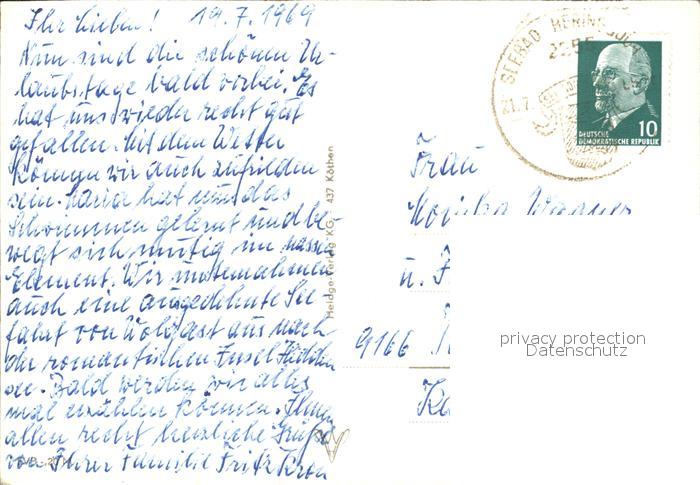 Ihr Lieben! 19.7.1969
Nun sind die schönen Ur-
laubstage bald vorbei. Es
hat uns wieder recht gut
gefallen. Mit dem Wetter
können wir auch zufrieden
sein. Maria hat nun das
Schwimmen gelernt und be-
wegt sich mutig im nassen
Element. Wir unternahmen
auch eine ausgedehnte See-
fahrt von Wolgast aus nach
der romantischen Insel Hidden-
see. Bald werden wir alles
mal erzählen können. Ihnen
allen recht herzliche Grüße
von Ihrer Familie Fritz
Heldge-Verlag KG. 437 Köthen
SEEBAD HERINGSDORF
21.7.
10
DEUTSCHE
DEMOKRATISCHE REPUBLIK
Frau
Monika
u. F
9166
privacy protection
Datenschutz